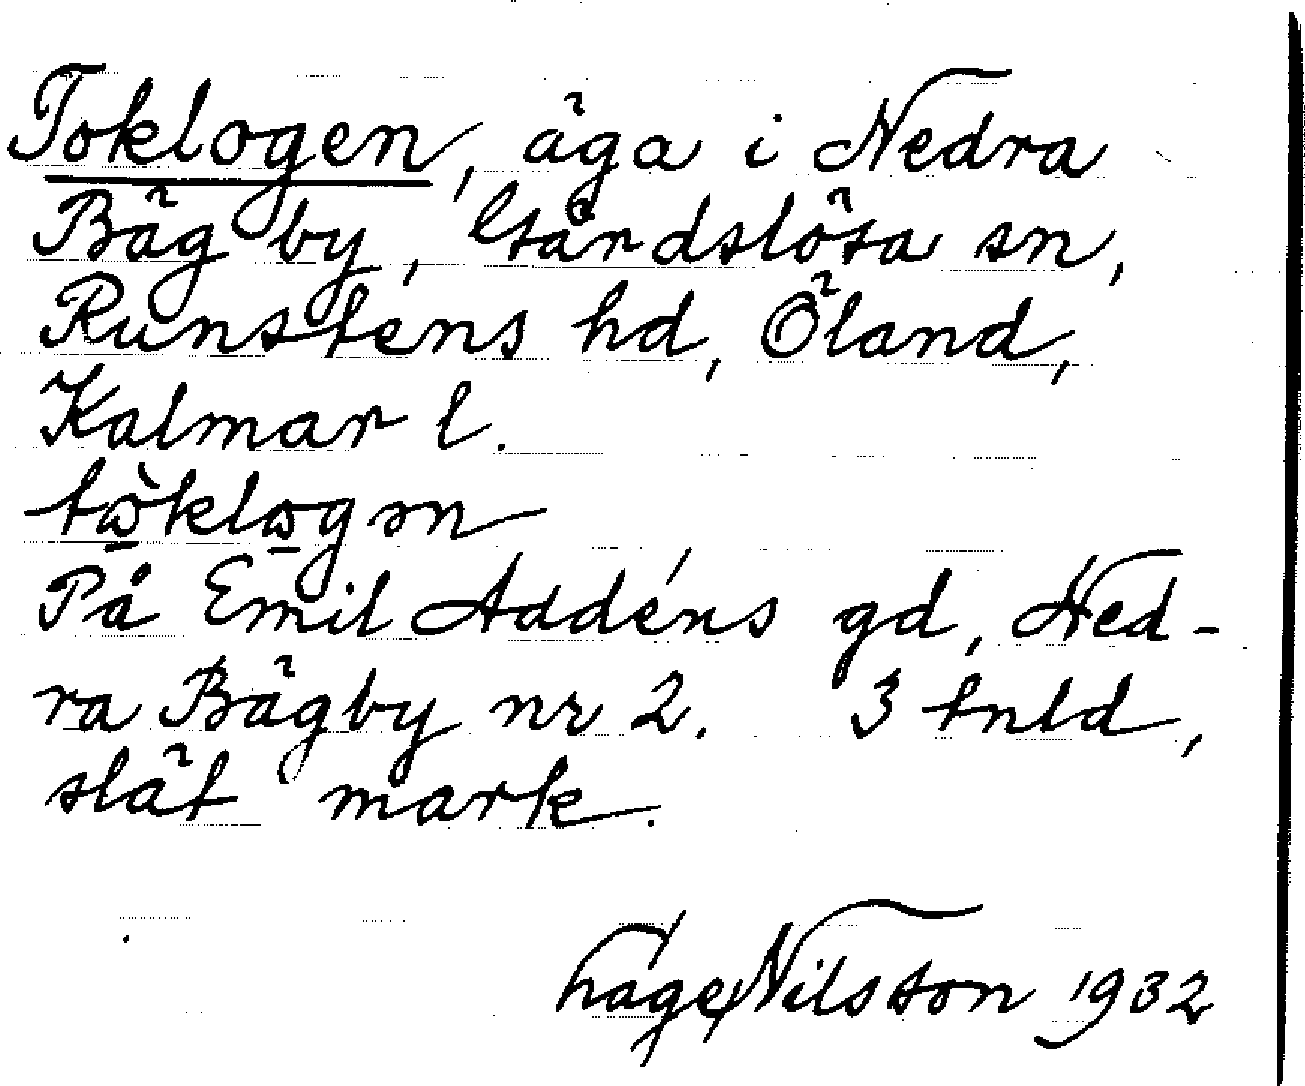 Toklogen, äga i Nedra
Bägby, Gårdslösa sn,
Runstens hd, Öland,
Kalmar l.
tὼ̱klω̱gən
På Emil Addéns gd, Ned-
ra Bägby nr 2. 3 tnld,
slät mark.
Håge Nilsson 1932